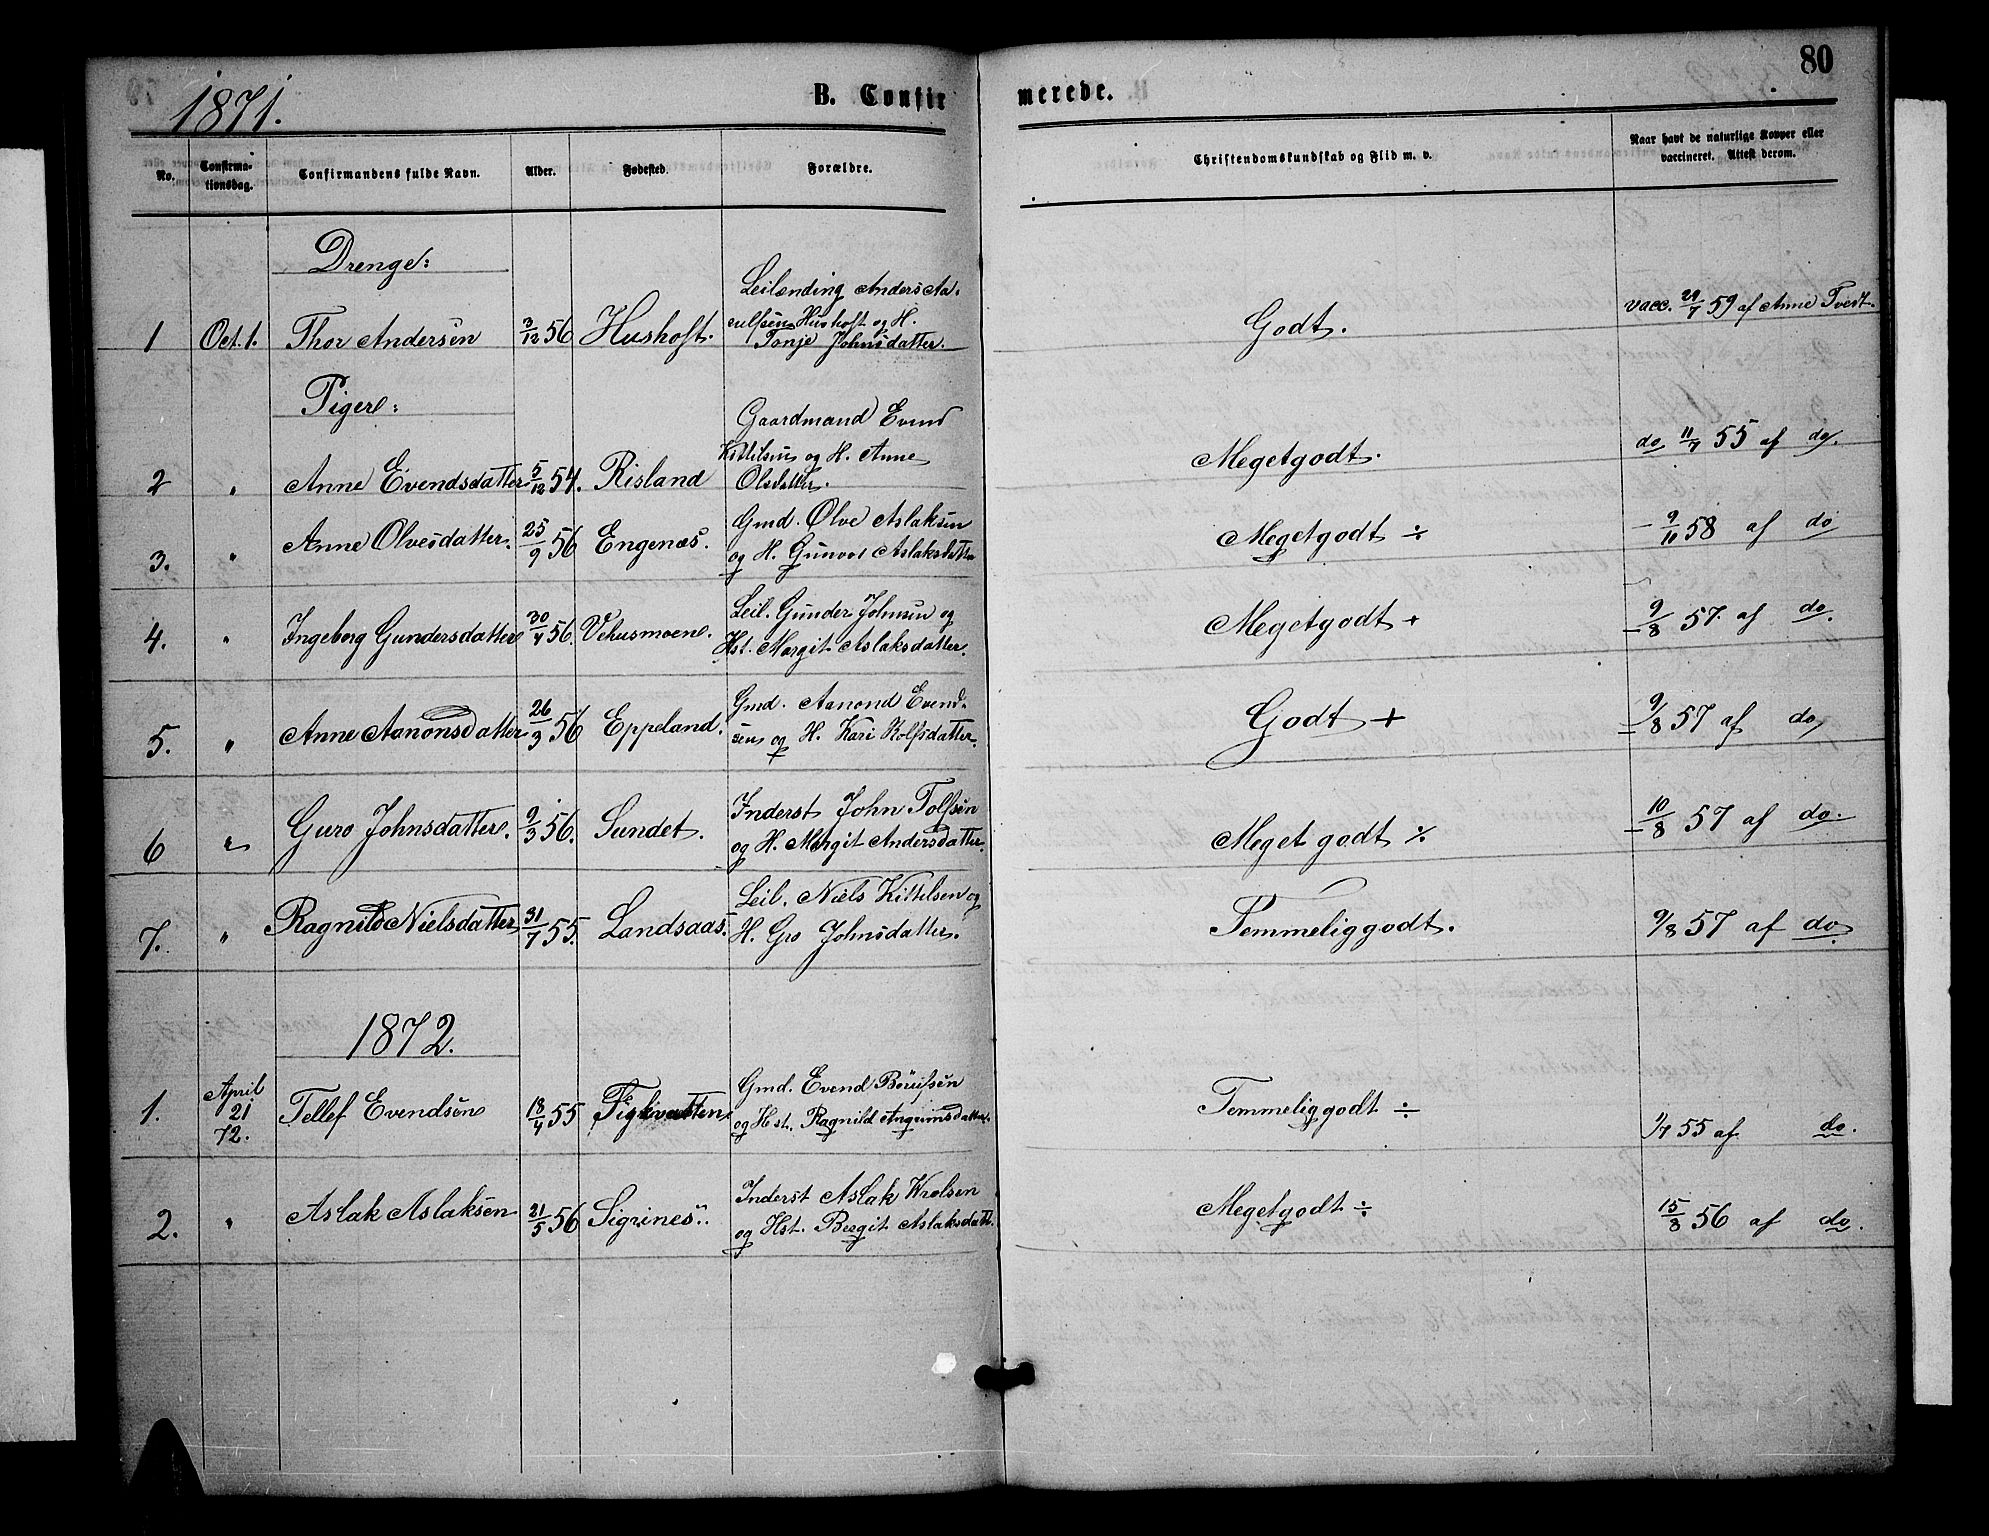 80
1871.
B. Confirmerede.
No.
Confirmationsdag.
Confirmandens fulde Navn.
Alder.
Fødested.
Forældre.
Christendomskundskab og Flid m. v.
Naar havt de naturlige Kopper eller
vaccineret. Attest derom.
Drenge:
1 Oct. 1. Thor Andersen 3/12 56 Hushoft.
Leilending Anders Aa-
nulfsen Hushoft og H.
Tonje Johnsdatter.
Godt.
vacc. 29/7 59 af Anne Tvedt.
Piger:
2 " Anne Evendsdatter 5/12 54. Risland
Gaardmand Evend
Kittilsen og H. Anne
Olsdatter.
Megetgodt.
do. 11/7 55 af do.
3. " Anne Olvesdatter. 25/9 56 Engenæs.
Gmd. Olve Aslaksen
og H. Gunvor Aslaksdatter
Megetgodt ÷
- 9/10 58 af do
4. " Ingeborg Gundersdatter 30/4 56. Vehusmoen.
Leil. Gunder Johnsen og
Hst. Margit Aslaksdatter.
Megetgodt +
- 9/8 57. af do.
5. " Anne Aanonsdatter 26/3 56 Eppeland.
Gmd. Aanond Evend-
sen og H. Kari Rolfsdatter.
Godt +
- 9/8 57 af do
6 " Guro Johnsdatter. 9/3 56. Sundet.
Inderst John Tolfsen
og H. Margit Andersdatter.
Meget godt ÷
- 10/8 57 af do.
7. " Ragnild Nielsdatter 31/7 55. Landsaas.
Leil. Niels Kittilsen og
H. Gro Johnsdatter.
Temmeliggodt.
9/8 57 af do
1872.
1. April 21 72. Tellef Evendsen 18/4 55
Gmd. Evend
og Hst. Ragnild
Temmeliggodt ÷
1/7 55 af do.
2. " Aslak Aslaksen 21/5 56 Sigrines.
Inderst Aslak
og Hst. Bergit Aslaksdatt.
Megetgodt ÷
15/8 56 af do.